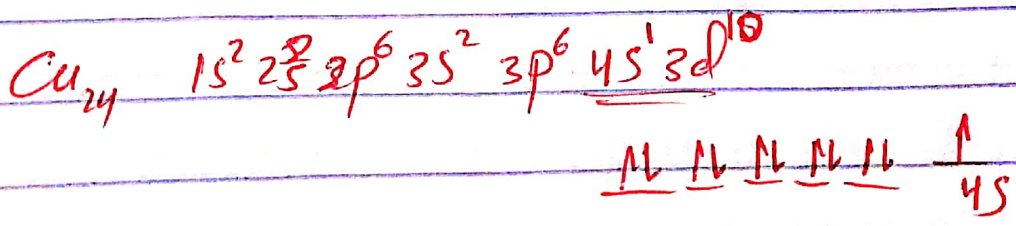 Cu₂₄ 1s² 2s² 2p⁶ 3s² 3p⁶ 4s¹ 3d¹⁰
⥮ ⥮ ⥮ ⥮ ⥮ ↑
4s